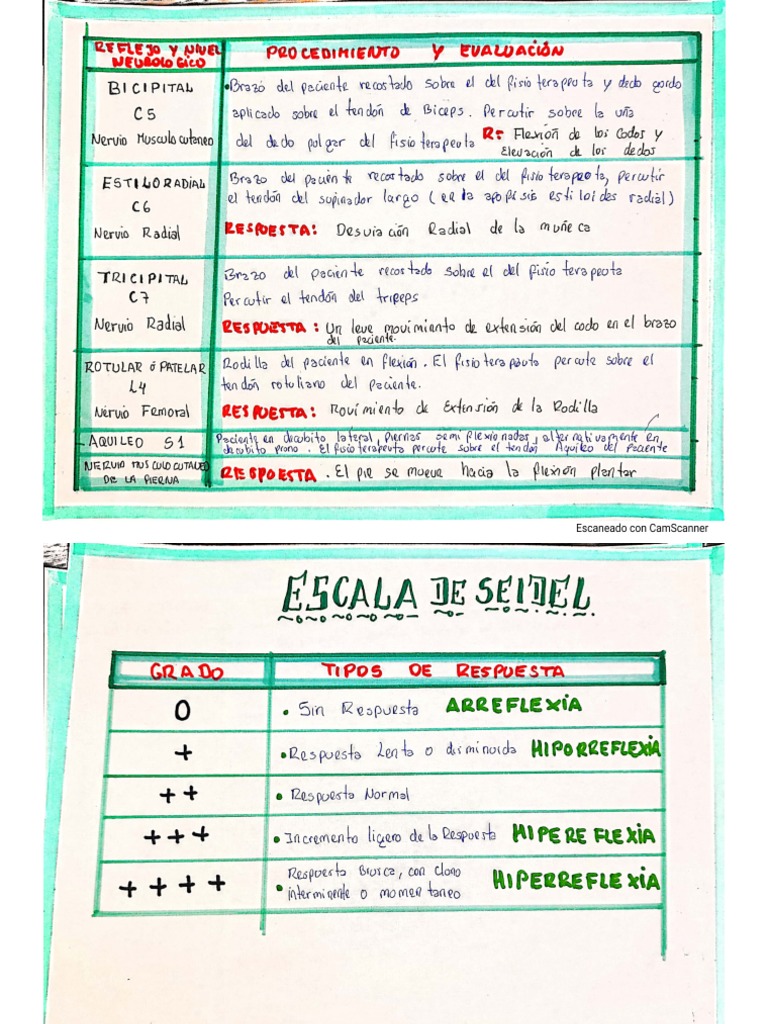 REFLEJO Y NIVEL
NEUROLOGICO
PROCEDIMIENTO Y EVALUACIÓN
BICIPITAL
C5
Nervio Musculo cutaneo
•Brazo del paciente recostado sobre el del fisio terapeuta y dedo gordo
aplicado sobre el tendón de Biceps. Percutir sobre la uña
del dedo pulgar del fisio terapeuta R: Flexión de los codos y
Elevación de los dedos
ESTILORADIAL
C6
Nervio Radial
Brazo del paciente recostado sobre el del fisio terapeuta, percutir
el tendón del supinador largo (en la apofisis estiloides radial)
RESPUESTA: Desviación Radial de la muñeca
TRICIPITAL
C7
Nervio Radial
Brazo del paciente recostado sobre el del fisio terapeuta
Percutir el tendón del tripeps
RESPUESTA: Un leve movimiento de extensión del codo en el brazo
del paciente.
ROTULAR ó PATELAR
L4
Nervio Femoral
Rodilla del paciente en flexión. El fisioterapeuta percute sobre el
tendón rotuliano del paciente.
RESPUESTA: Movimiento de Extensión de la Rodilla
AQUILEO S1
NERVIO MUSCULO CUTANEO
DE LA PIERNA
Paciente en decubito lateral, piernas semi flexionadas, alternativamente en
decubito prono. El fisioterapeuta percute sobre el tendón Aquileo del paciente
RESPUESTA. El pie se mueve hacia la flexión plantar
Escaneado con CamScanner
ESCALA DE SEIDEL
GRADO
TIPOS DE RESPUESTA
0
• Sin Respuesta ARREFLEXIA
+
• Respuesta Lenta o disminuida HIPORREFLEXIA
++
• Respuesta Normal
+++
• Incremento ligero de la Respuesta HIPEREFLEXIA
++++
Respuesta Brusca, con clono
• interminente o momentaneo HIPERREFLEXIA